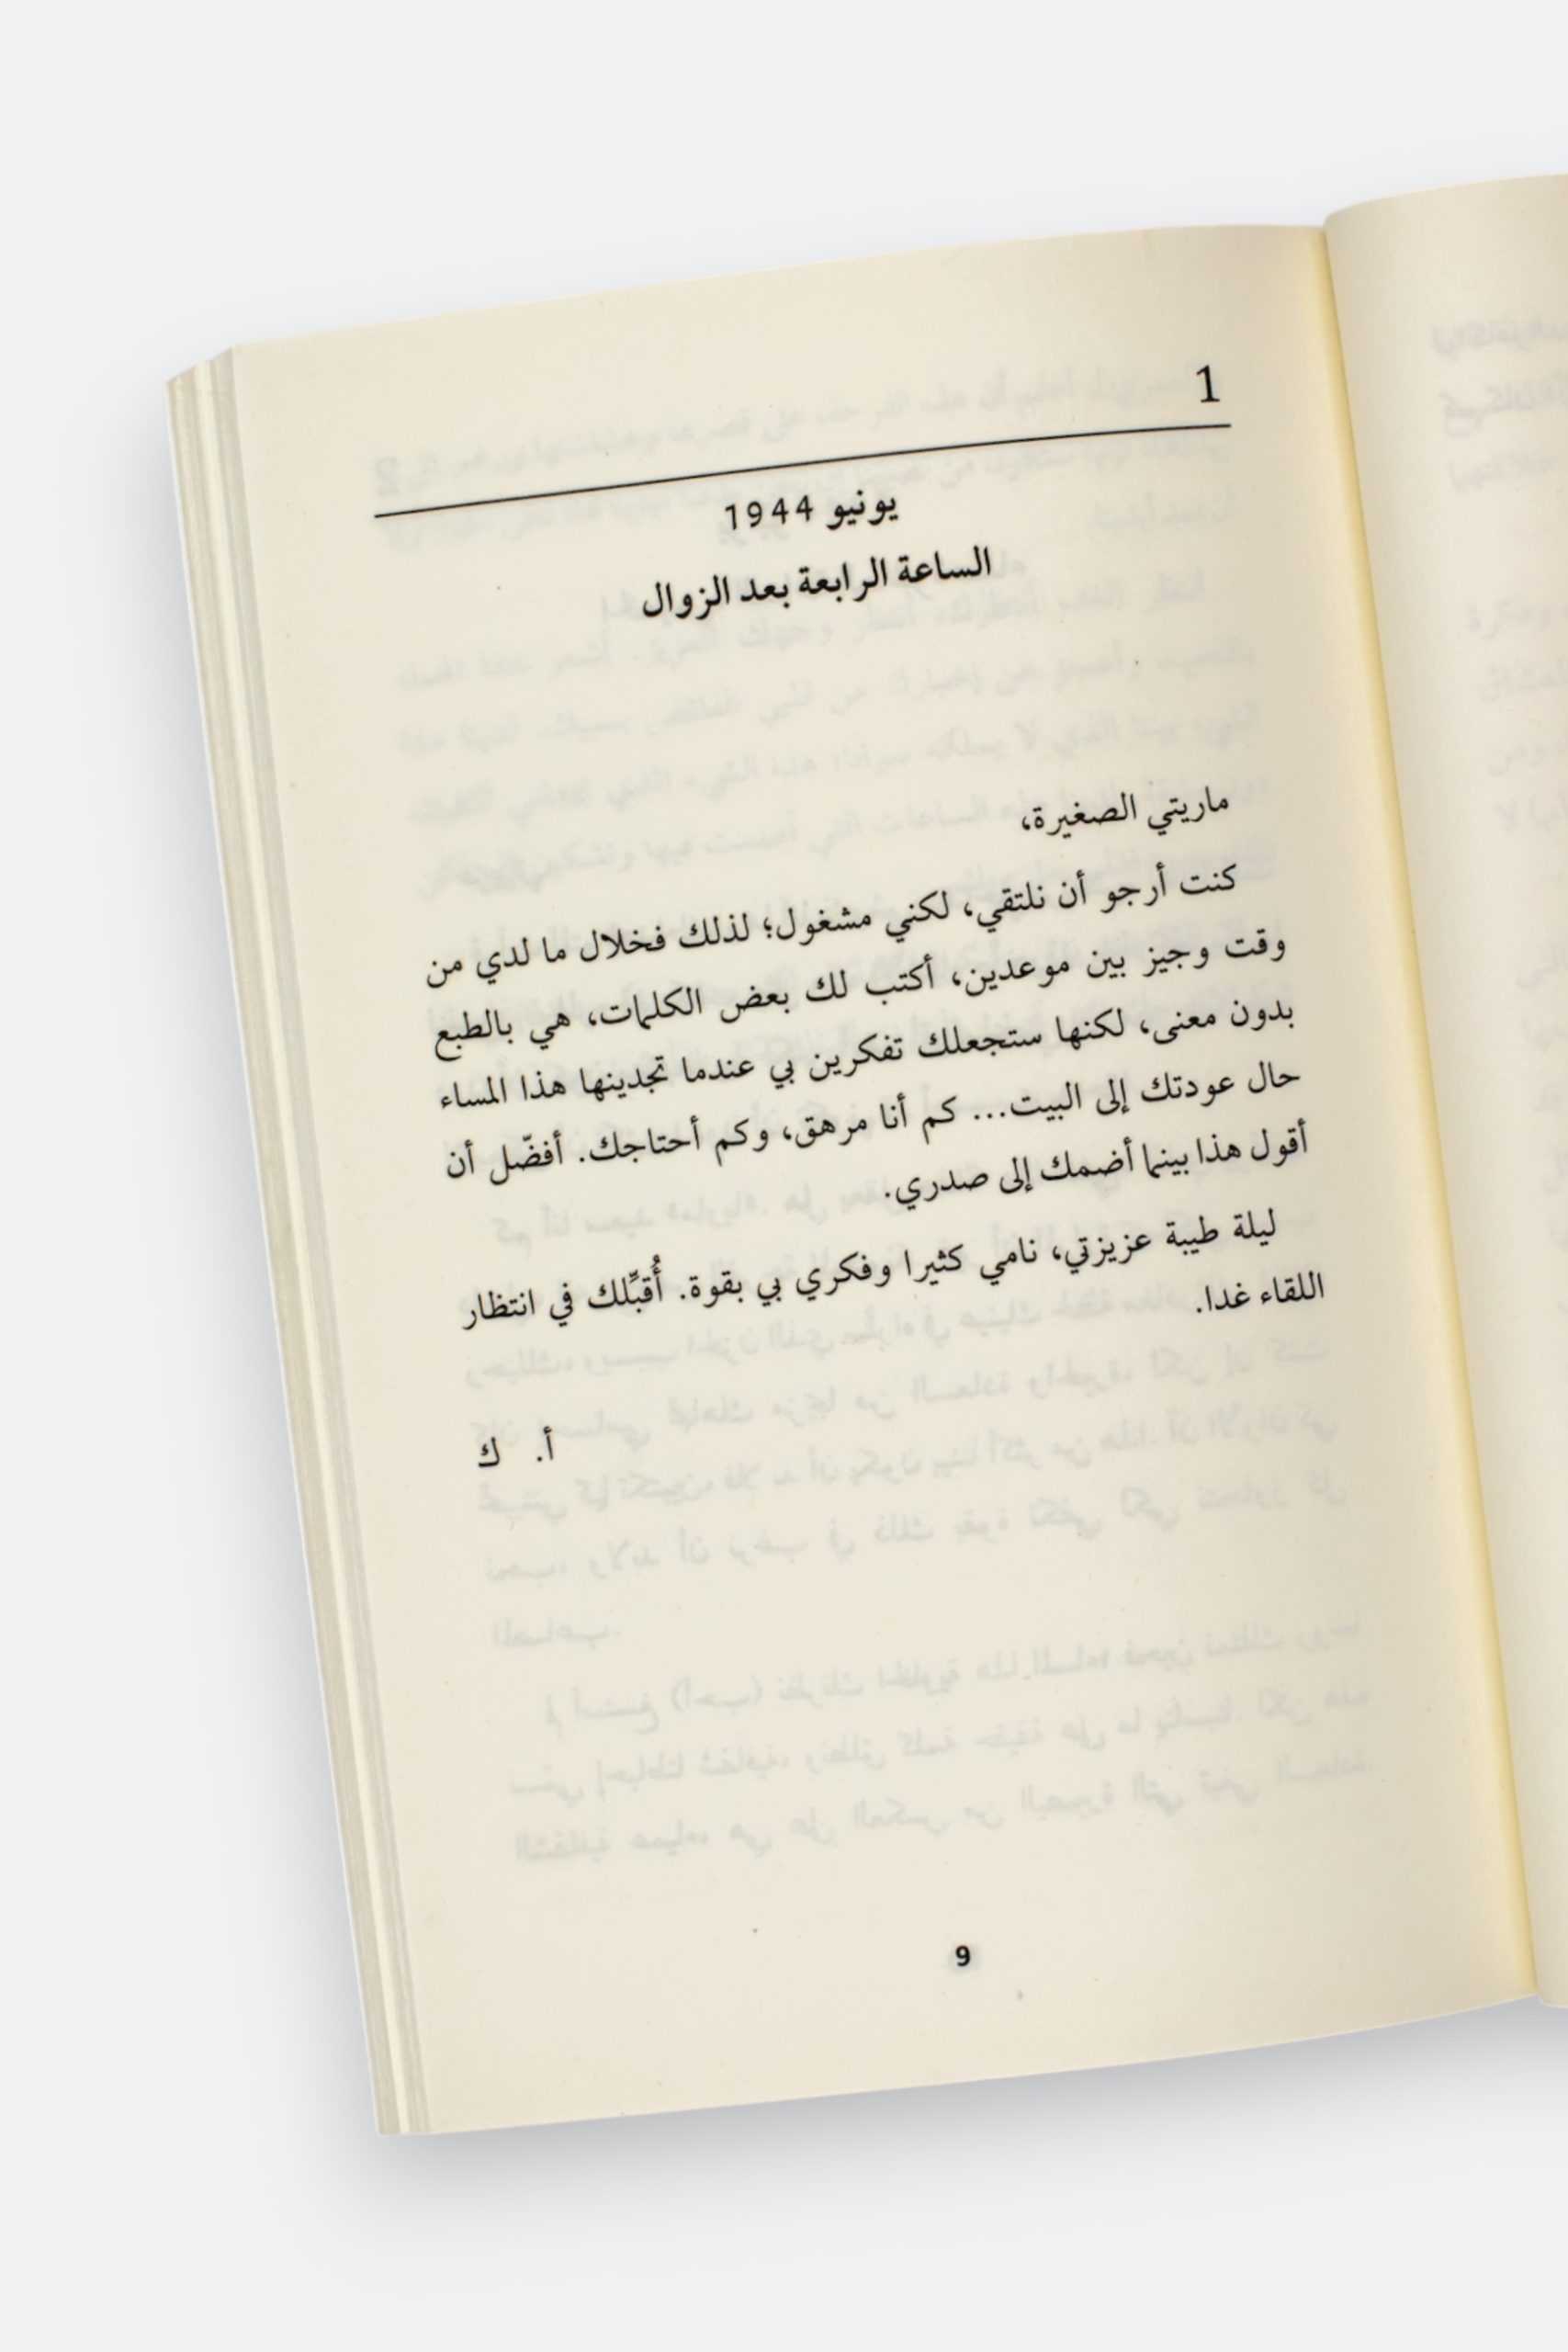 1
يونيو 1944
الساعة الرابعة بعد الزوال
ماريتي الصغيرة،
كنت أرجو أن نلتقي، لكني مشغول؛ لذلك فخلال ما لدي من
وقت وجيز بين موعدين، أكتب لك بعض الكلمات، هي بالطبع
بدون معنى، لكنها ستجعلك تفكرين بي عندما تجدينها هذا المساء
حال عودتك إلى البيت... كم أنا مرهق، وكم أحتاجك. أفضّل أن
أقول هذا بينما أضمك إلى صدري.
ليلة طيبة عزيزتي، نامي كثيرا وفكري بي بقوة. أُقبِّلك في انتظار
اللقاء غدا.
أ. ك
9